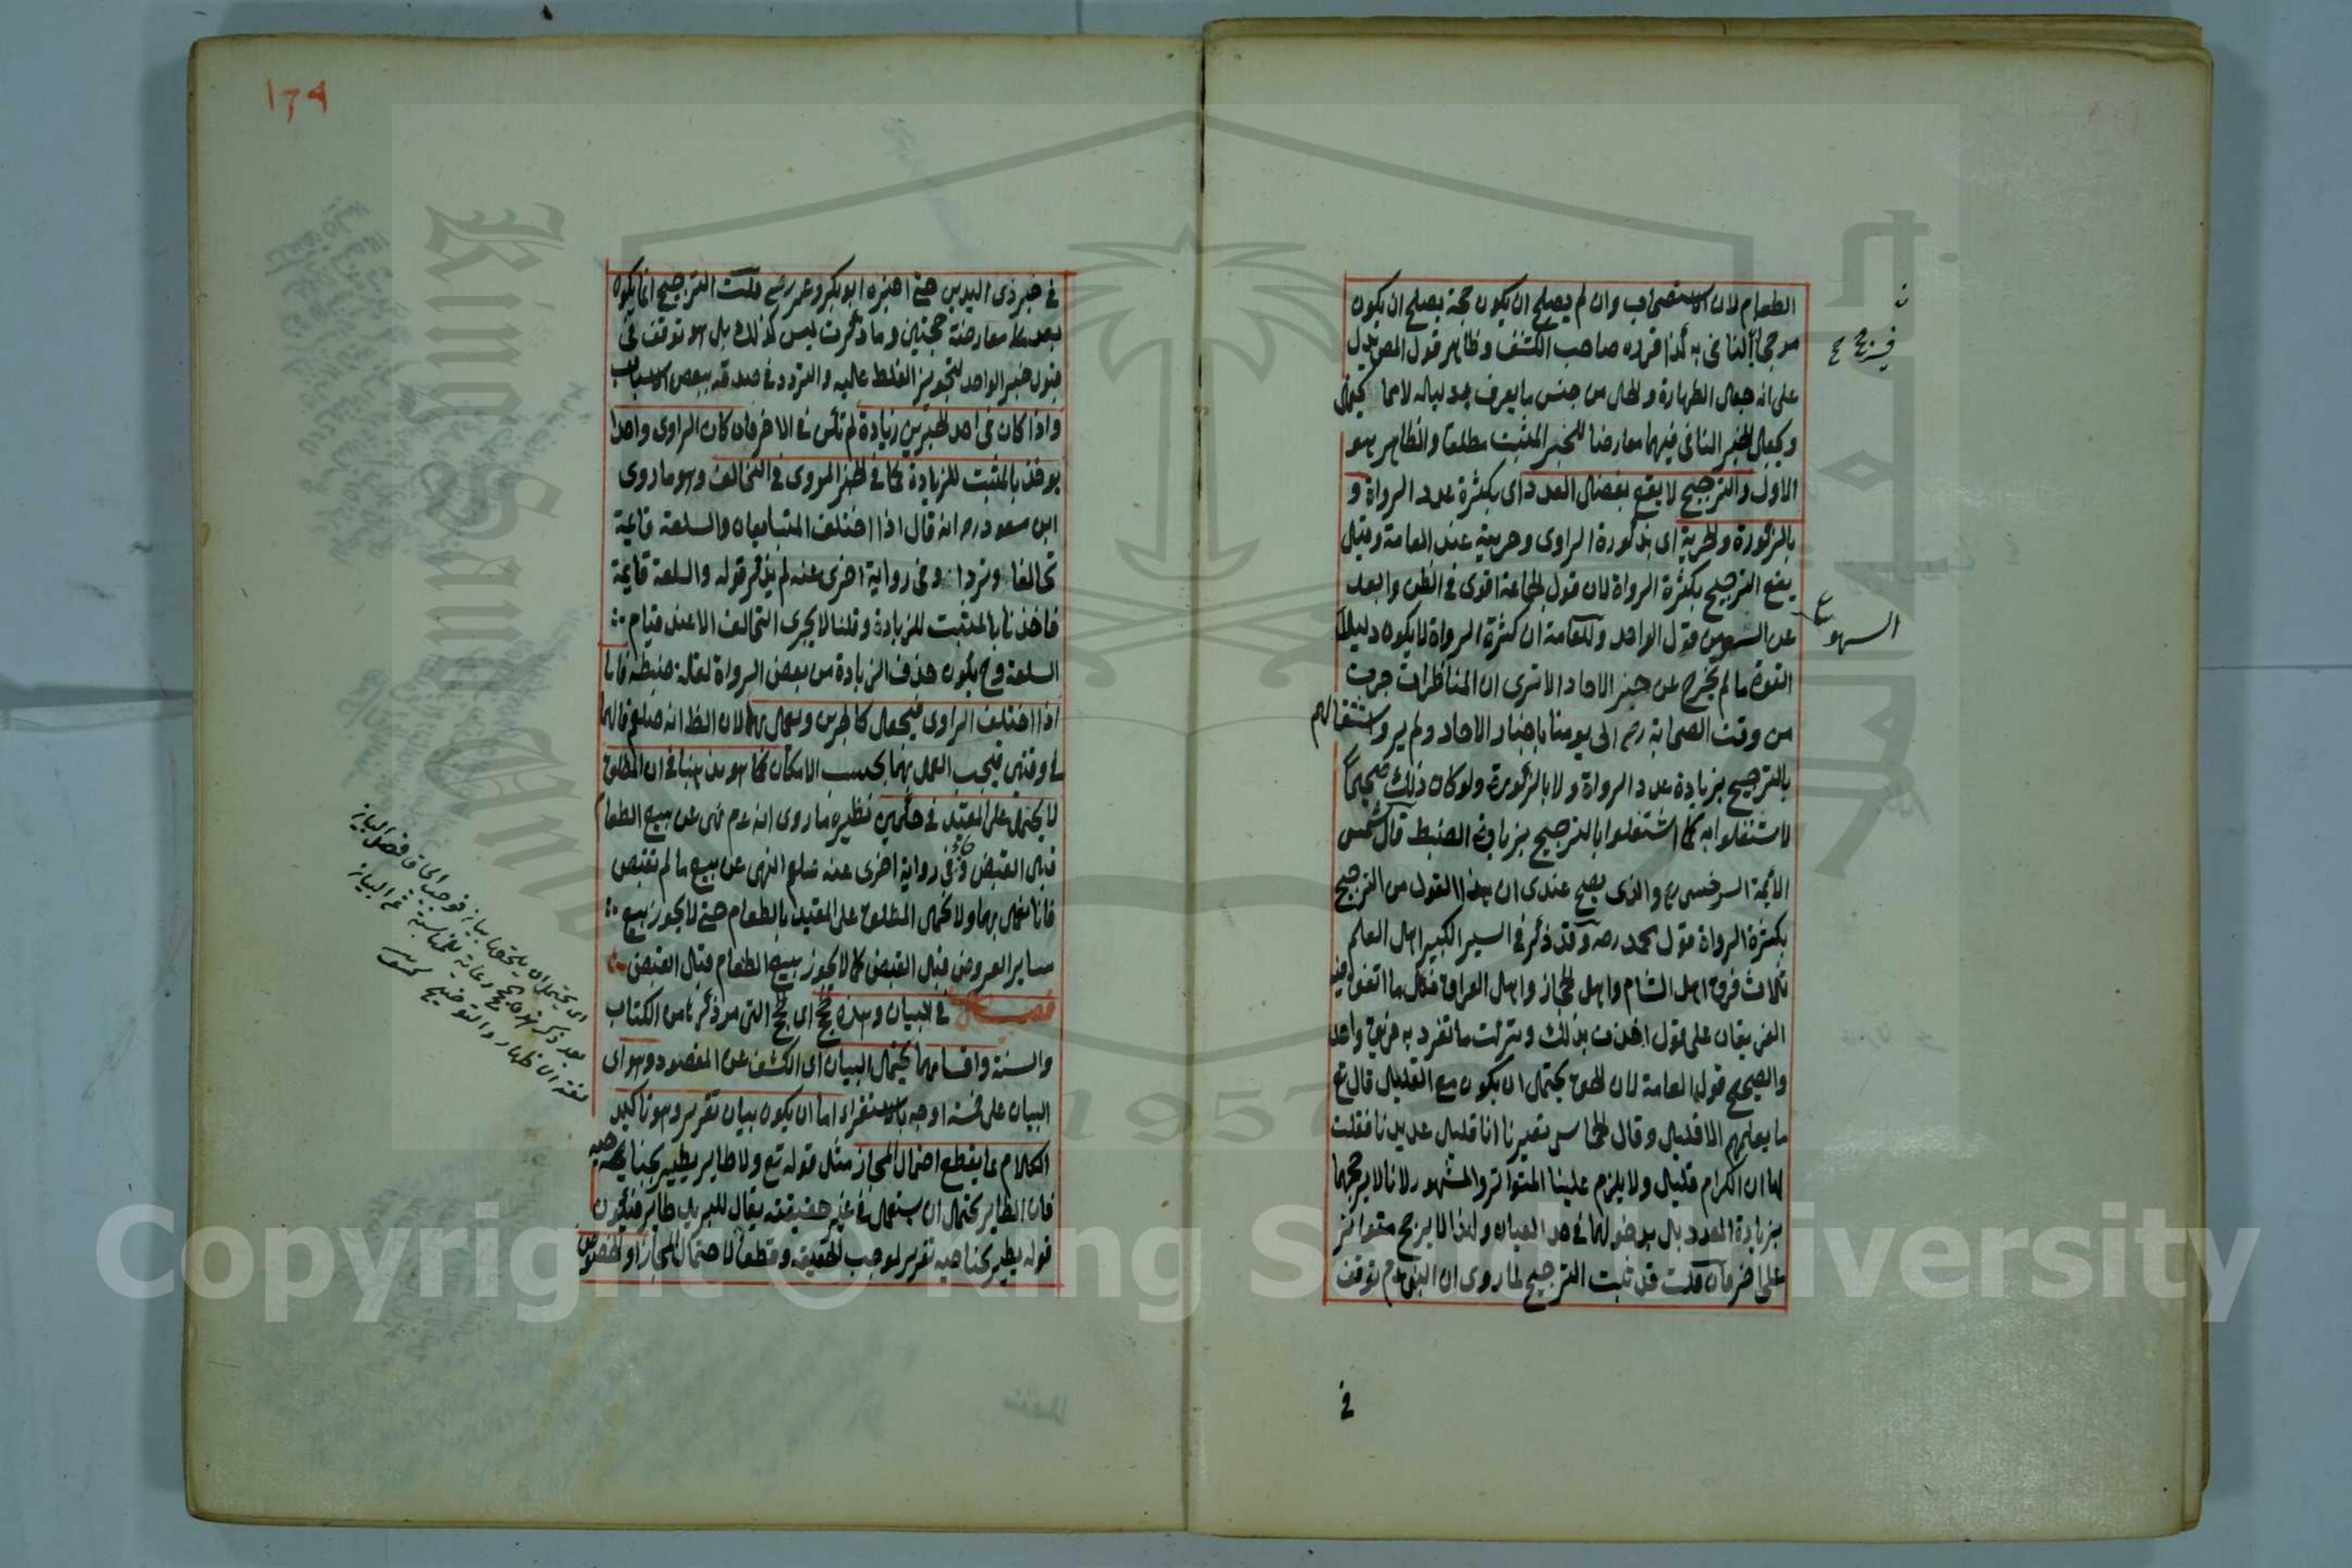 الطعام لان الاستصحاب وان لم يصلح ان يكون حجة يصلح ان يكون
مرجحا النافى به كذا قرره صاحب الكشف وظاهر قول المص يدل
على انه جعل الطهارة والحل من جنس ما يعرف بدليله لامحا
ويجعل الخبر النافى فيهما معارضا للخبر المثبت مطلقا والظاهر هو
الاول والترجيح لا يقع بفضل العدد اى بكثرة عدد الرواة و
بالذكورة والحرية اى بذكورة الراوى وحريته عند العامة وقيل
يقع الترجيح بكثرة الرواة لان قول الجماعة اقوى فى الظن وابعد
عن السهو من قول الواحد وللعامة ان كثرة الرواة لا يكون دليل
القوة ما لم يخرج عن حيز الاحاد الا ترى ان المناظرات جرت
من وقت الصحابة رضه الى يومنا باخبار الاحاد ولم يرو اشتغالهم
بالترجيح بزيادة عدد الرواة ولا بالذكورة ولو كان ذلك صحيحا
لاشتغلوا به كما اشتغلوا بالترجيح بزيادة الضبط قال شمس
الائمة السرخسى رح والذى يصح عندى ان هذا القول من الترجيح
بكثرة الرواة قول محمد رحه وقد ذكر فى السير الكبير اهل العلم
ثلاث فرق اهل الشام واهل الحجاز واهل العراق فكل ما اتفق فيه
الفريقان على قول اخذت بذلك وتركت ما تفرد به فريق واحد
والصحيح قول العامة لان الحق يحتمل ان يكون مع القليل قال تع
ما يعلمهم الا قليل وقال الحماسى تعيرنا انا قليل عديدنا فقلت
لها ان الكرام قليل ولا يلزم علينا المتواتر والمشهور لانا لا نرجحهما
بزيادة العدد بل بدخولهما فى حد العيان ولهذا لا يرجح متواتر
على اخر فان قلت قد ثبت الترجيح لما روى ان النبى عم توقف
فى
السهو
١٦٩
فى خبر ذى اليدين حتى اخبره ابو بكر وعمر رضى قلت الترجيح انما يكون
بعد معارضة حجتين وما ذكرت ليس كذلك بل هو توقف فى
قبول خبر الواحد لتجويز الغلط عليه والتردد فى صدقه ببعض الاسباب
واذا كان فى احد الخبرين زيادة لم تكن فى الاخر فان كان الراوى واحدا
يؤخذ بالمثبت للزيادة كما فى الخبر المروى فى التحالف وهو ما روى
ابن مسعود رضه انه قال اذا اختلف المتبايعان والسلعة قايمة
تحالفا وترادا وفى رواية اخرى عنه لم يذكر قوله والسلعة قايمة
فاخذنا بالمثبت للزيادة وقلنا لا يجرى التحالف الا عند قيام
السلعة وح يكون حذف الزيادة من بعض الرواة لقلة ضبطه فاما
اذا اختلف الراوى فيجعل كالخبرين ويعمل بهما لان الظ انه صلعم قالهما
فى وقتين فيجب العمل بهما بحسب الامكان كما هو مذهبنا فى ان المطلق
لا يحتمل على المقيد فى حكمين نظيره ما روى انه عم نهى عن بيع الطعام
قبل القبض وفى رواية اخرى عنه صلعم النهى عن بيع ما لم تقبض
فانا نعمل بهما ولا نحمل المطلق على المقيد بالطعام حتى لا يجوز بيع
ساير العروض قبل القبض كما لا يجوز بيع الطعام قبل القبض
فصل فى البيان وهذه الحجج اى الحجج التى مر ذكرها من الكتاب
والسنة واقسامهما يحتمل البيان اى الكشف عن المقصود وهو اى
البيان على خمسة اوجه بالاستقراء اما ان يكون بيان تقرير وهو تاكيد
الكلام بما يقطع احتمال المجاز مثل قوله تع ولا طاير يطير بجناحيه
فان الطاير يحتمل ان يستعمل فى غير حقيقته يقال للبريد طاير فيكون
قوله يطير بجناحيه تقرير لموجب الحقيقة وقطعا لاحتمال المجاز او الخصوص
King Saud University
1957
Copyright © King Saud University